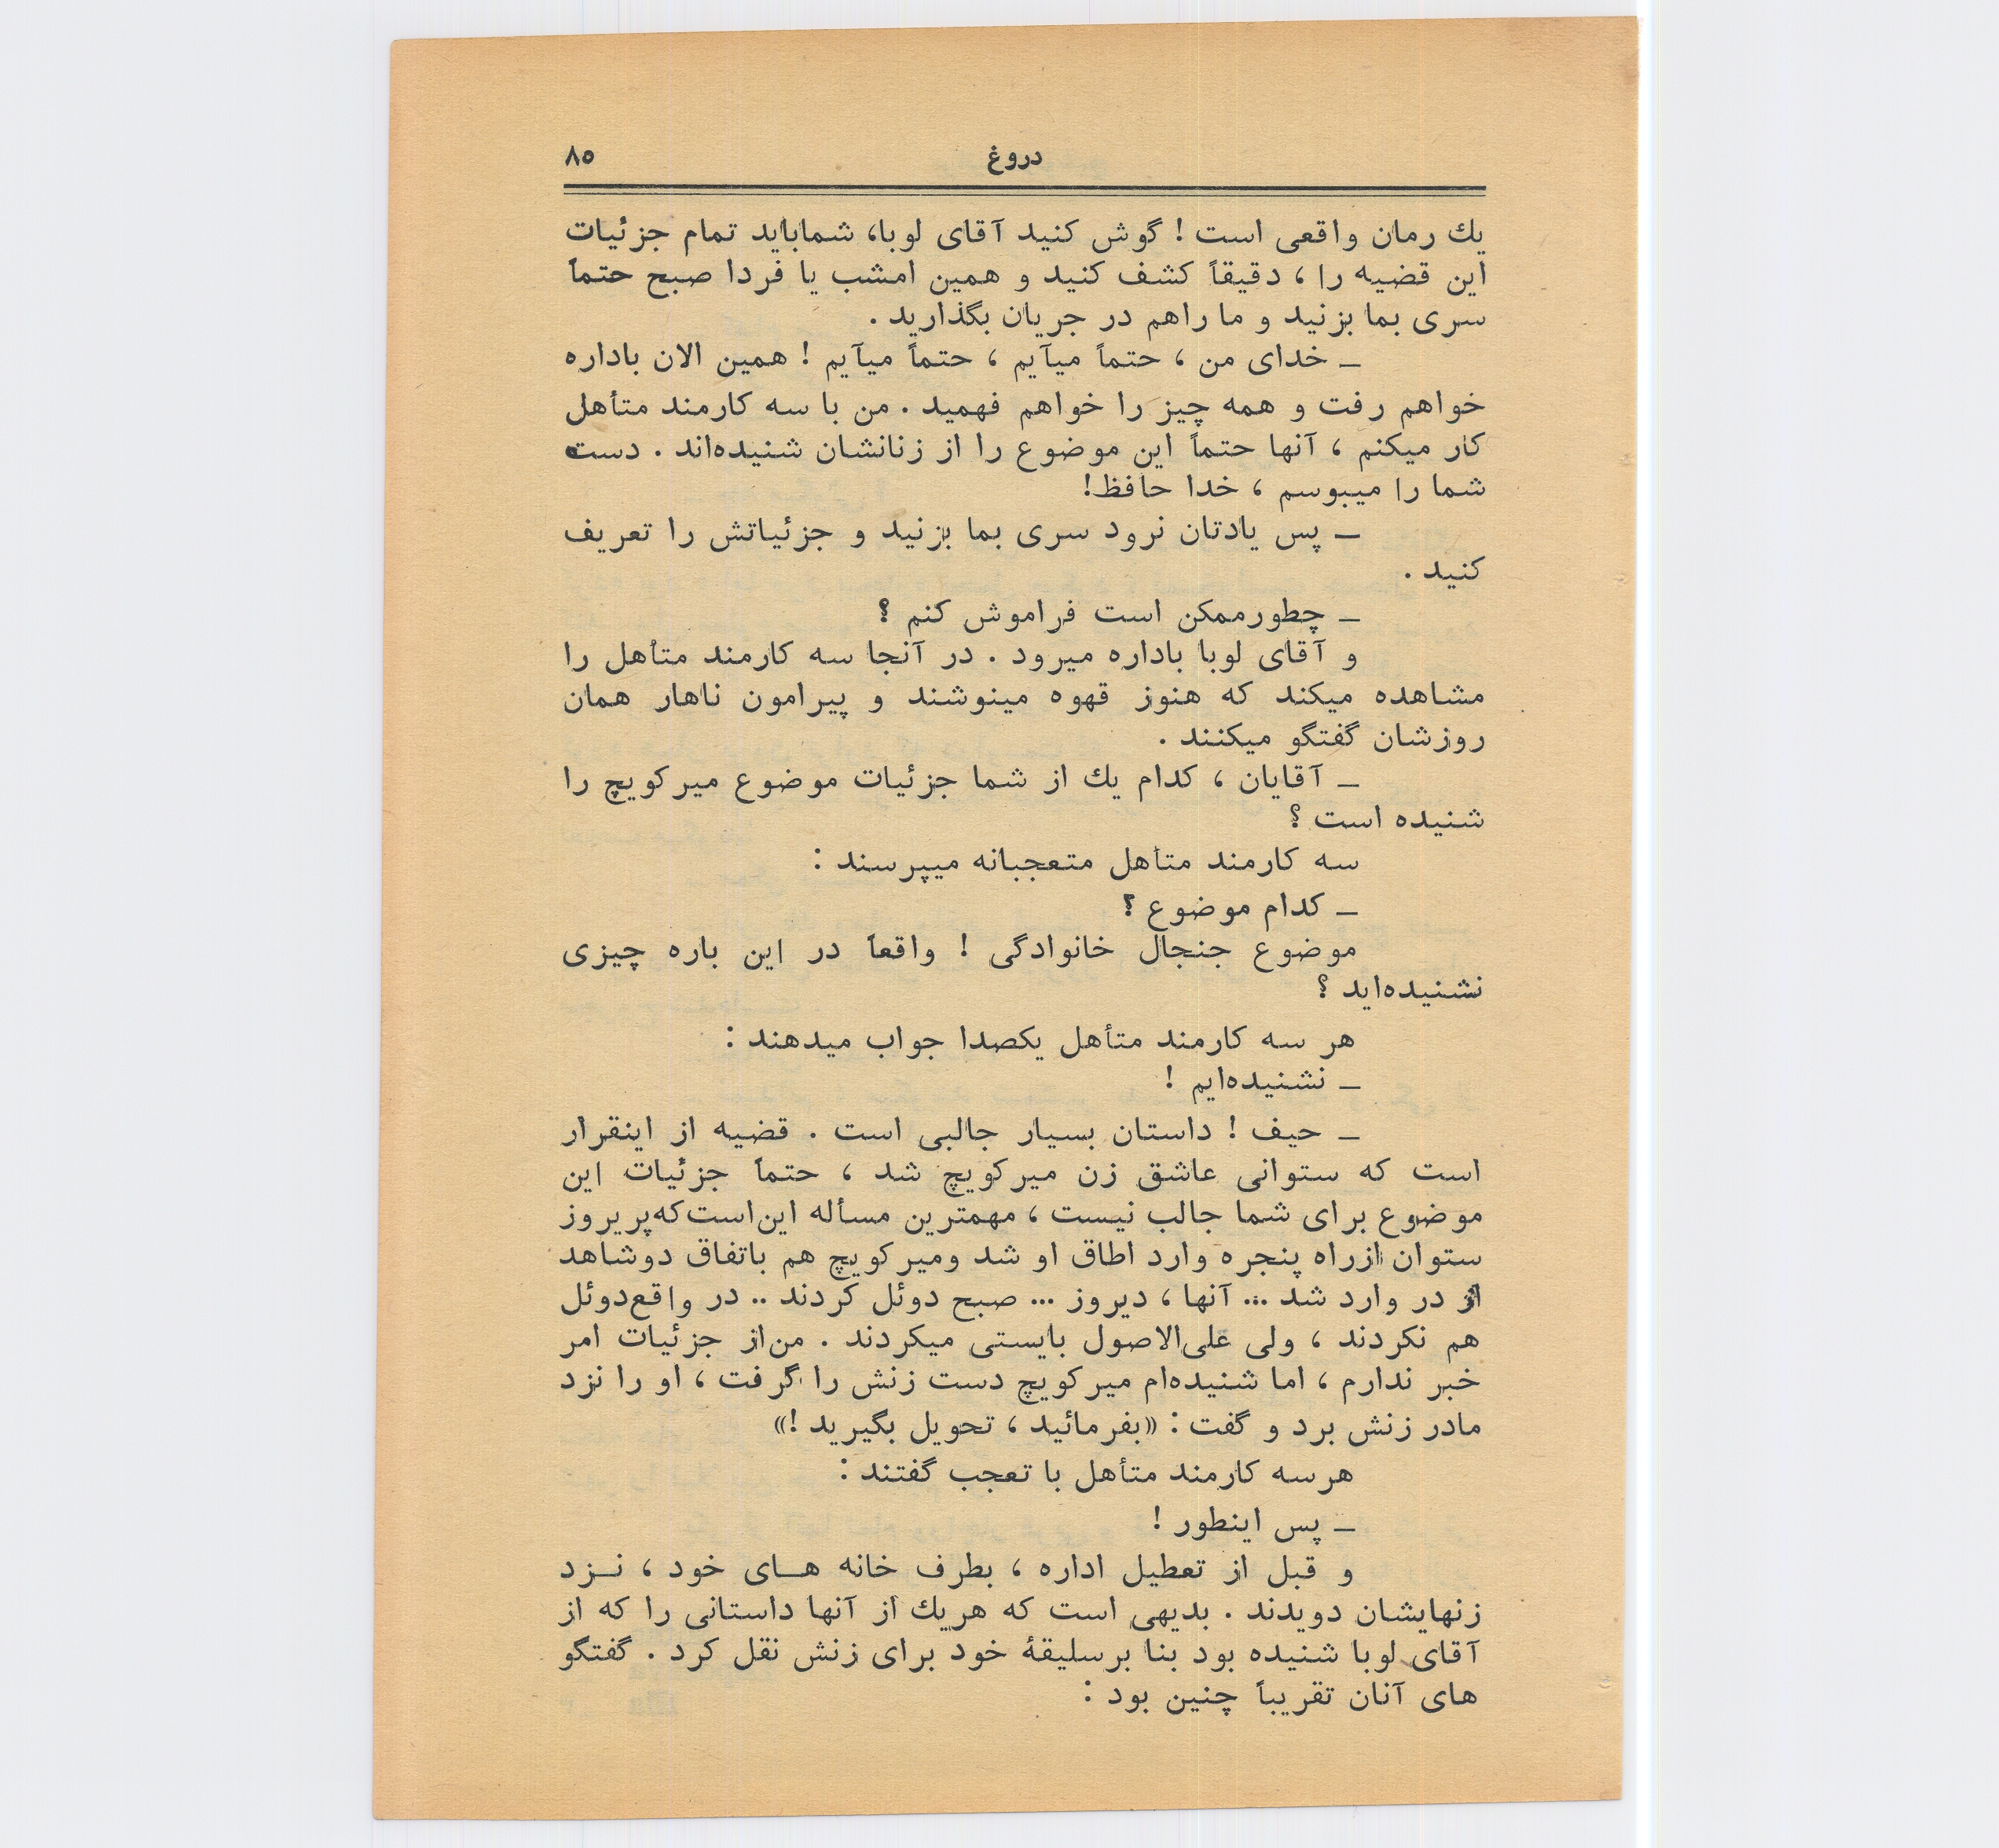 دروغ ۸۵
يك رمان واقعی است ! گوش کنید آقای لوبا، شماباید تمام جزئیات
این قضیه را ، دقیقاً کشف کنید و همین امشب یا فردا صبح حتماً
سری بما بزنید و ما راهم در جریان بگذارید .
ـ خدای من ، حتماً میآیم ، حتماً میآیم ! همین الان باداره
خواهم رفت و همه چیز را خواهم فهمید . من با سه کارمند متأهل
کار میکنم ، آنها حتماً این موضوع را از زنانشان شنیده‌اند . دست
شما را میبوسم ، خدا حافظ!
ـ پس یادتان نرود سری بما بزنید و جزئیاتش را تعریف
کنید .
ـ چطورممکن است فراموش کنم ؟
و آقای لوبا باداره میرود . در آنجا سه کارمند متأهل را
مشاهده میکند که هنوز قهوه مینوشند و پیرامون ناهار همان
روزشان گفتگو میکنند .
ـ آقایان ، کدام يك از شما جزئیات موضوع میرکویچ را
شنیده است ؟
سه کارمند متأهل متعجبانه میپرسند :
ـ کدام موضوع ؟
موضوع جنجال خانوادگی ! واقعاً در این باره چیزی
نشنیده‌اید ؟
هر سه کارمند متأهل یکصدا جواب میدهند :
ـ نشنیده‌ایم !
ـ حیف ! داستان بسیار جالبی است . قضیه از اینقرار
است که ستوانی عاشق زن میرکویچ شد ، حتماً جزئیات این
موضوع برای شما جالب نیست ، مهمترین مسأله این‌است‌که‌پریروز
ستوان ازراه پنجره وارد اطاق او شد ومیرکویچ هم باتفاق دوشاهد
از در وارد شد ... آنها ، دیروز ... صبح دوئل کردند .. در واقع‌دوئل
هم نکردند ، ولی علی‌الاصول بایستی میکردند . من‌از جزئیات امر
خبر ندارم ، اما شنیده‌ام میرکویچ دست زنش را گرفت ، او را نزد
مادر زنش برد و گفت : «بفرمائید ، تحویل بگیرید !»
هرسه کارمند متأهل با تعجب گفتند :
ـ پس اینطور !
و قبل از تعطیل اداره ، بطرف خانه هـای خود ، نـزد
زنهایشان دویدند . بدیهی است که هريك از آنها داستانی را که از
آقای لوبا شنیده بود بنا برسلیقهٔ خود برای زنش نقل کرد . گفتگو
های آنان تقریباً چنین بود :